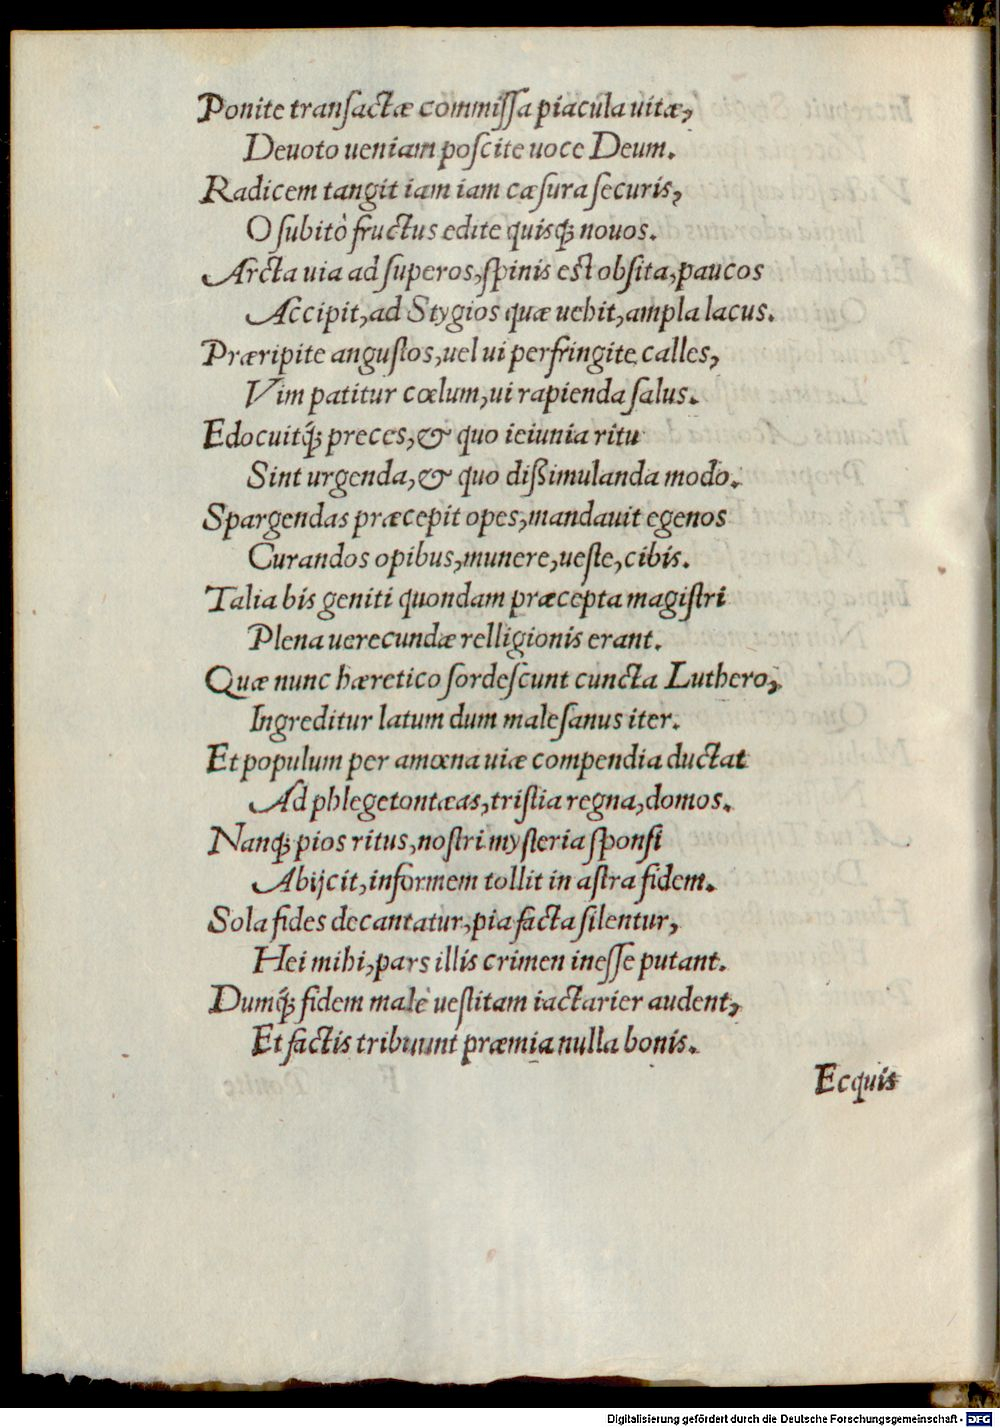 Ponite transactæ commissa piacula uitæ,
Deuoto ueniam poscite uoce Deum.
Radicem tangit iam iam cæsura securis,
O subitò fructus edite quisq; nouos.
Arcta uia ad superos, spinis est obsita, paucos
Accipit, ad Stygios quæ uehit, ampla lacus.
Præripite angustos, uel ui perfringite calles,
Vim patitur cœlum, ui rapienda salus.
Edocuitq́; preces, & quo ieiunia ritu
Sint urgenda, & quo dißimulanda modo.
Spargendas præcepit opes, mandauit egenos
Curandos opibus, munere, ueste, cibis.
Talia bis geniti quondam præcepta magistri
Plena uerecundæ relligionis erant.
Quæ nunc hæretico sordescunt cuncta Luthero,
Ingreditur latum dum malesanus iter.
Et populum per amœna uiæ compendia ductat
Ad phlegetontæas, tristia regna, domos.
Nanq; pios ritus, nostri mysteria sponsi
Abijcit, informem tollit in astra fidem.
Sola fides decantatur, pia facta silentur,
Hei mihi, pars illis crimen inesse putant.
Dumq́; fidem malè uestitam iactarier audent,
Et factis tribuunt præmia nulla bonis.
Ecquis
Digitalisierung gefördert durch die Deutsche Forschungsgemeinschaft - DFG